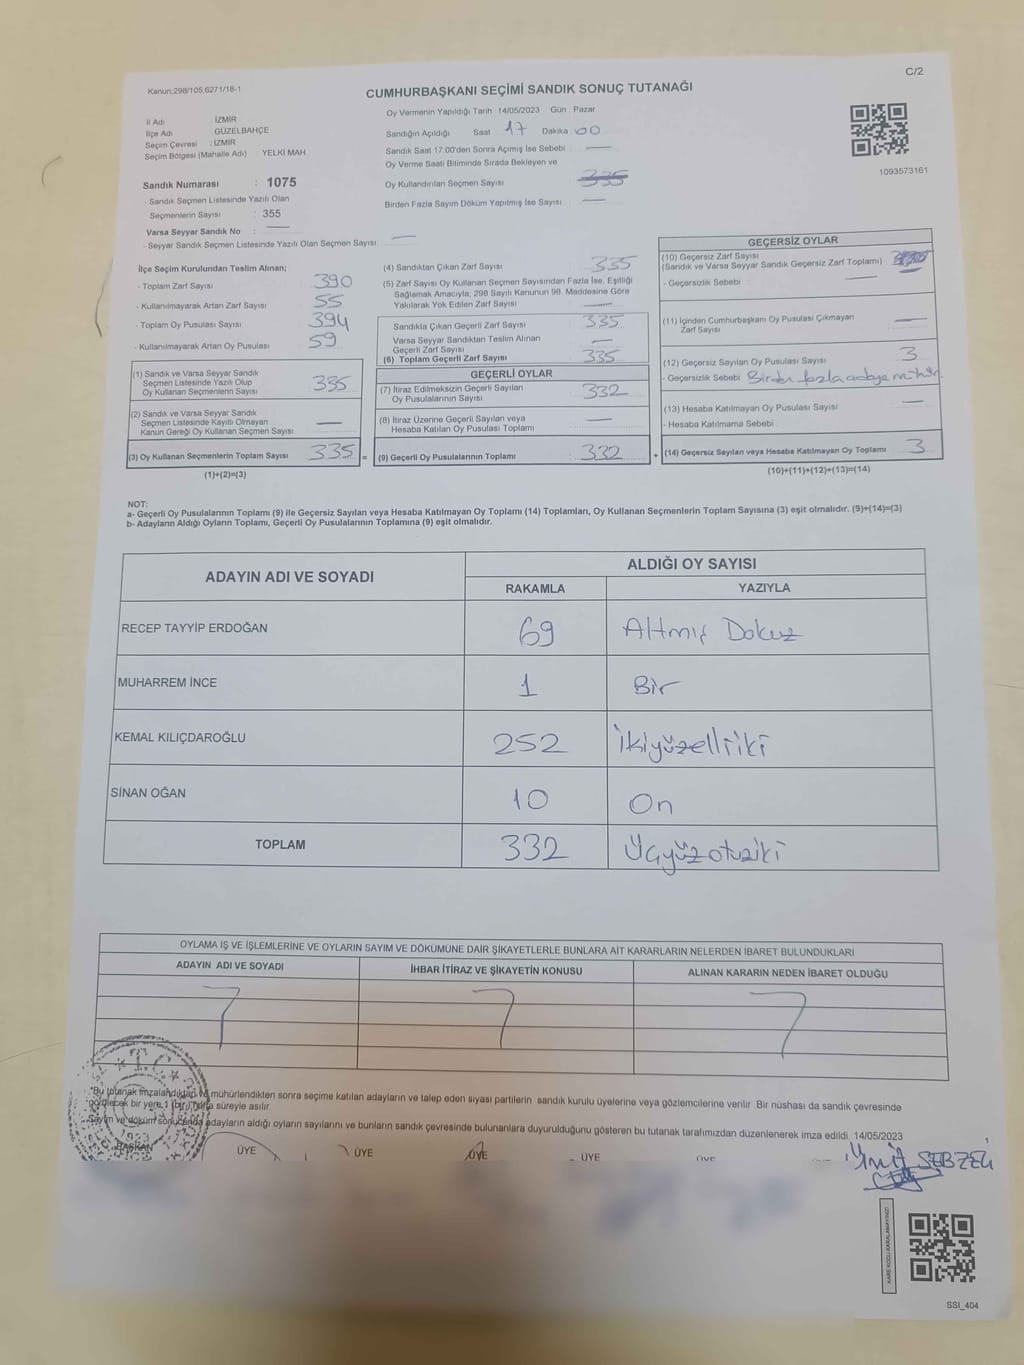 Kanun,298/105,6271/18-1
CUMHURBAŞKANI SEÇİMİ SANDIK SONUÇ TUTANAĞI
C/2
İl Adı : İZMİR
İlçe Adı : GÜZELBAHÇE
Seçim Çevresi : İZMİR
Seçim Bölgesi (Mahalle Adı) : YELKİ MAH.
Sandık Numarası : 1075
- Sandık Seçmen Listesinde Yazılı Olan
Seçmenlerin Sayısı : 355
Varsa Seyyar Sandık No :
- Seyyar Sandık Seçmen Listesinde Yazılı Olan Seçmen Sayısı
Oy Vermenin Yapıldığı Tarih : 14/05/2023 Gün : Pazar
Sandığın Açıldığı Saat : 17 Dakika : 00
Sandık Saat 17.00'den Sonra Açılmış İse Sebebi :
Oy Verme Saati Bitiminde Sırada Bekleyen ve
Oy Kullandırılan Seçmen Sayısı : 335
Birden Fazla Sayım Döküm Yapılmış İse Sayısı :
1093573161
İlçe Seçim Kurulundan Teslim Alınan;
- Toplam Zarf Sayısı : 390
- Kullanılmayarak Artan Zarf Sayısı : 55
- Toplam Oy Pusulası Sayısı : 394
- Kullanılmayarak Artan Oy Pusulası : 59
(1) Sandık ve Varsa Seyyar Sandık
Seçmen Listesinde Yazılı Olup
Oy Kullanan Seçmenlerin Sayısı : 335
(2) Sandık ve Varsa Seyyar Sandık
Seçmen Listesinde Kayıtlı Olmayan
Kanun Gereği Oy Kullanan Seçmen Sayısı
(3) Oy Kullanan Seçmenlerin Toplam Sayısı : 335 =
(1)+(2)=(3)
(4) Sandıktan Çıkan Zarf Sayısı : 335
(5) Zarf Sayısı Oy Kullanan Seçmen Sayısından Fazla İse, Eşitliği
Sağlamak Amacıyla; 298 Sayılı Kanunun 98. Maddesine Göre
Yakılarak Yok Edilen Zarf Sayısı :
Sandıkla Çıkan Geçerli Zarf Sayısı : 335
Varsa Seyyar Sandıktan Teslim Alınan
Geçerli Zarf Sayısı :
(6) Toplam Geçerli Zarf Sayısı : 335
GEÇERLİ OYLAR
(7) İtiraz Edilmeksizin Geçerli Sayılan
Oy Pusulalarının Sayısı : 332
(8) İtiraz Üzerine Geçerli Sayılan veya
Hesaba Katılan Oy Pusulası Toplamı :
(9) Geçerli Oy Pusulalarının Toplamı : 332 +
GEÇERSİZ OYLAR
(10) Geçersiz Zarf Sayısı
(Sandık ve Varsa Seyyar Sandık Geçersiz Zarf Toplamı) :
- Geçersizlik Sebebi :
(11) İçinden Cumhurbaşkanı Oy Pusulası Çıkmayan
Zarf Sayısı :
(12) Geçersiz Sayılan Oy Pusulası Sayısı : 3
- Geçersizlik Sebebi : Birden fazla adaya mühür.
(13) Hesaba Katılmayan Oy Pusulası Sayısı :
- Hesaba Katılmama Sebebi :
(14) Geçersiz Sayılan veya Hesaba Katılmayan Oy Toplamı : 3
(10)+(11)+(12)+(13)=(14)
NOT:
a- Geçerli Oy Pusulalarının Toplamı (9) ile Geçersiz Sayılan veya Hesaba Katılmayan Oy Toplamı (14) Toplamları, Oy Kullanan Seçmenlerin Toplam Sayısına (3) eşit olmalıdır. (9)+(14)=(3)
b- Adayların Aldığı Oyların Toplamı, Geçerli Oy Pusulalarının Toplamına (9) eşit olmalıdır.
ADAYIN ADI VE SOYADI
ALDIĞI OY SAYISI
RAKAMLA YAZIYLA
RECEP TAYYİP ERDOĞAN 69 Altmış Dokuz
MUHARREM İNCE 1 Bir
KEMAL KILIÇDAROĞLU 252 İkiyüzelliiki
SİNAN OĞAN 10 On
TOPLAM 332 Üçyüzotuziki
OYLAMA İŞ VE İŞLEMLERİNE VE OYLARIN SAYIM VE DÖKÜMÜNE DAİR ŞİKAYETLERLE BUNLARA AİT KARARLARIN NELERDEN İBARET BULUNDUKLARI
ADAYIN ADI VE SOYADI İHBAR İTİRAZ VE ŞİKAYETİN KONUSU ALINAN KARARIN NEDEN İBARET OLDUĞU
*Bu tutanak imzalandıktan ve mühürlendikten sonra seçime katılan adayların ve talep eden siyasi partilerin sandık kurulu üyelerine veya gözlemcilerine verilir. Bir nüshası da sandık çevresinde
görülecek bir yere 1 (bir) hafta süreyle asılır.
Sayım ve döküm sonucunda adayların aldığı oyların sayılarını ve bunların sandık çevresinde bulunanlara duyurulduğunu gösteren bu tutanak tarafımızdan düzenlenerek imza edildi. 14/05/2023
BAŞKAN ÜYE ÜYE ÜYE ÜYE ÜYE
Ümit SEBZELİ
KARE KODU KARALAMAYINIZ!
SSI_404